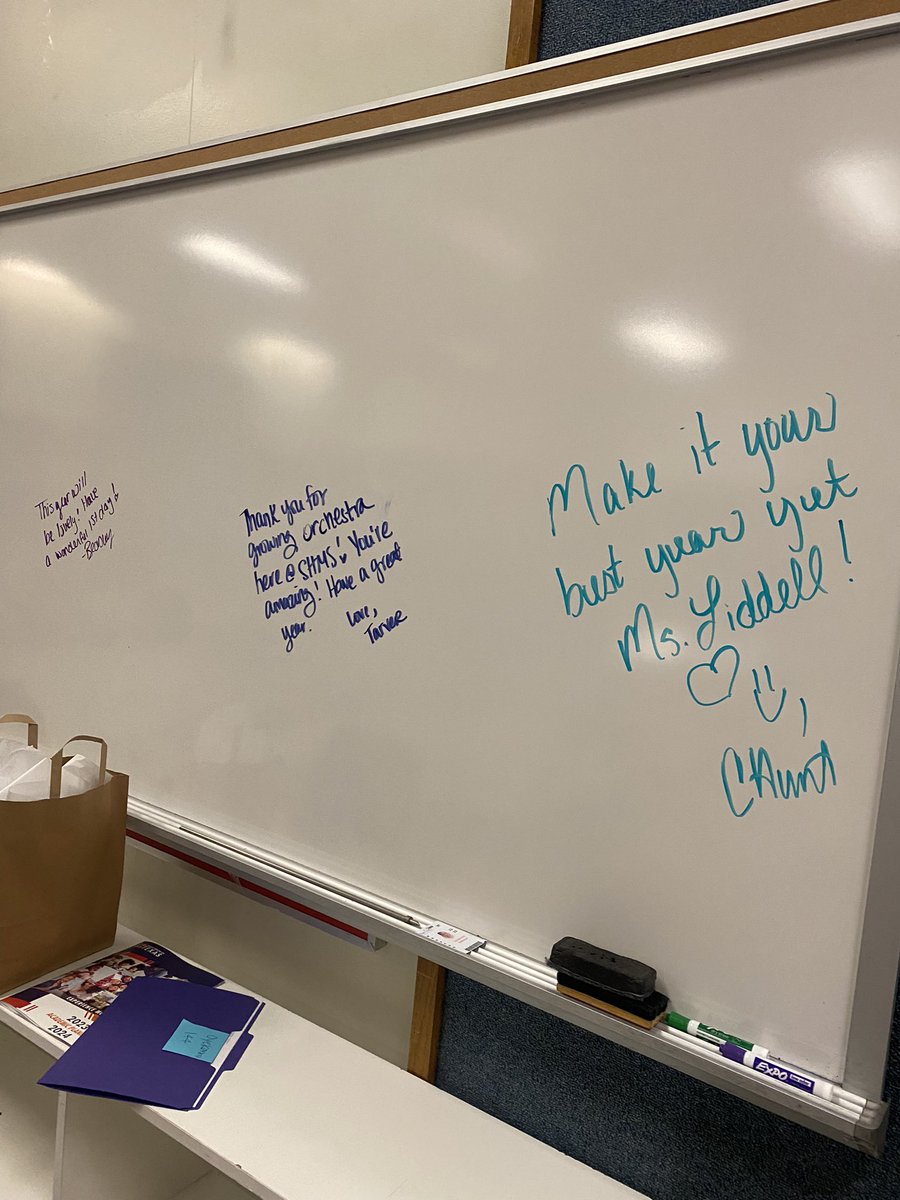 This year will
be lovely! Have
a wonderful 1st day!
Thank you for
growing orchestra
here @ SHMS! You're
amazing! Have a great
year.
Love,
Tarver
Make it your
best year yet
Ms. Liddell!
CHunt
EXPO
2023
2024